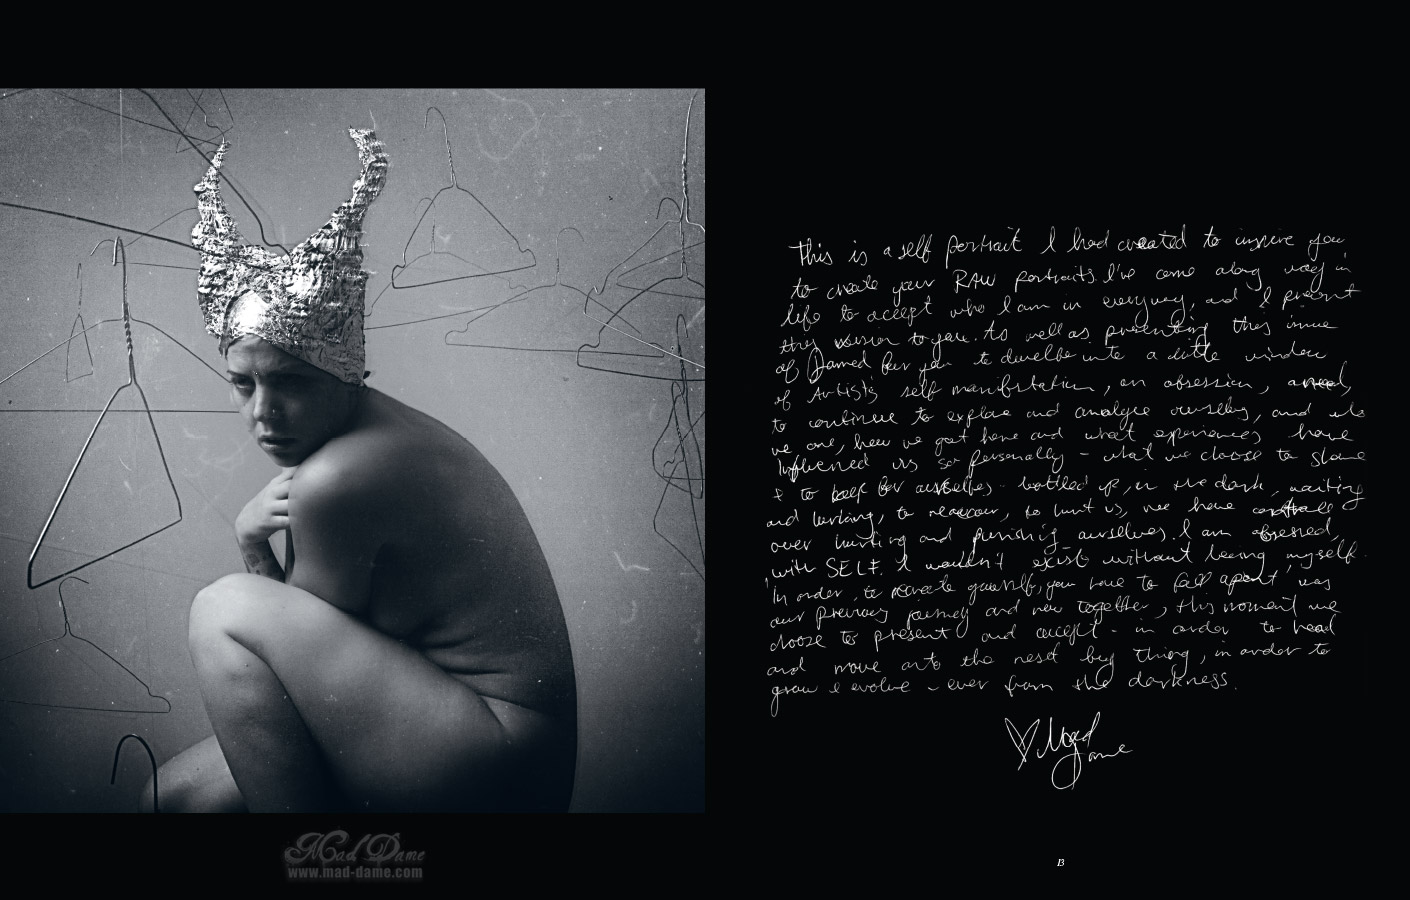 Mad Dame
www.mad-dame.com
This is a self portrait I had created to inspire you
to create your RAW portraits. I've come along way in
life to accept who I am in everyway, and I present
this version to you. As well as presenting this issue
of Damed for you to dwelbe into a little window
of Artists self manifistation, an obsession, a need,
to continue to explore and analyse ourselves, and who
we are, how we got here and what experiences have
influenced us so personally - what we choose to share
& to keep for ourselves - bottled up, in the dark, waiting
and lurking, to reaccour, to hunt us, we have controll
over hurting and punishing ourselves. I am obsessed,
with SELF. I wouldn't exist without being myself.
In order, to recreate yourself, you have to fall apart,
our previous journey and new together, this moment we
choose to present and accept - in order to head
and move onto the next big thing, in order to
grow & evolve - ever from the darkness.
Mad
Dame
13